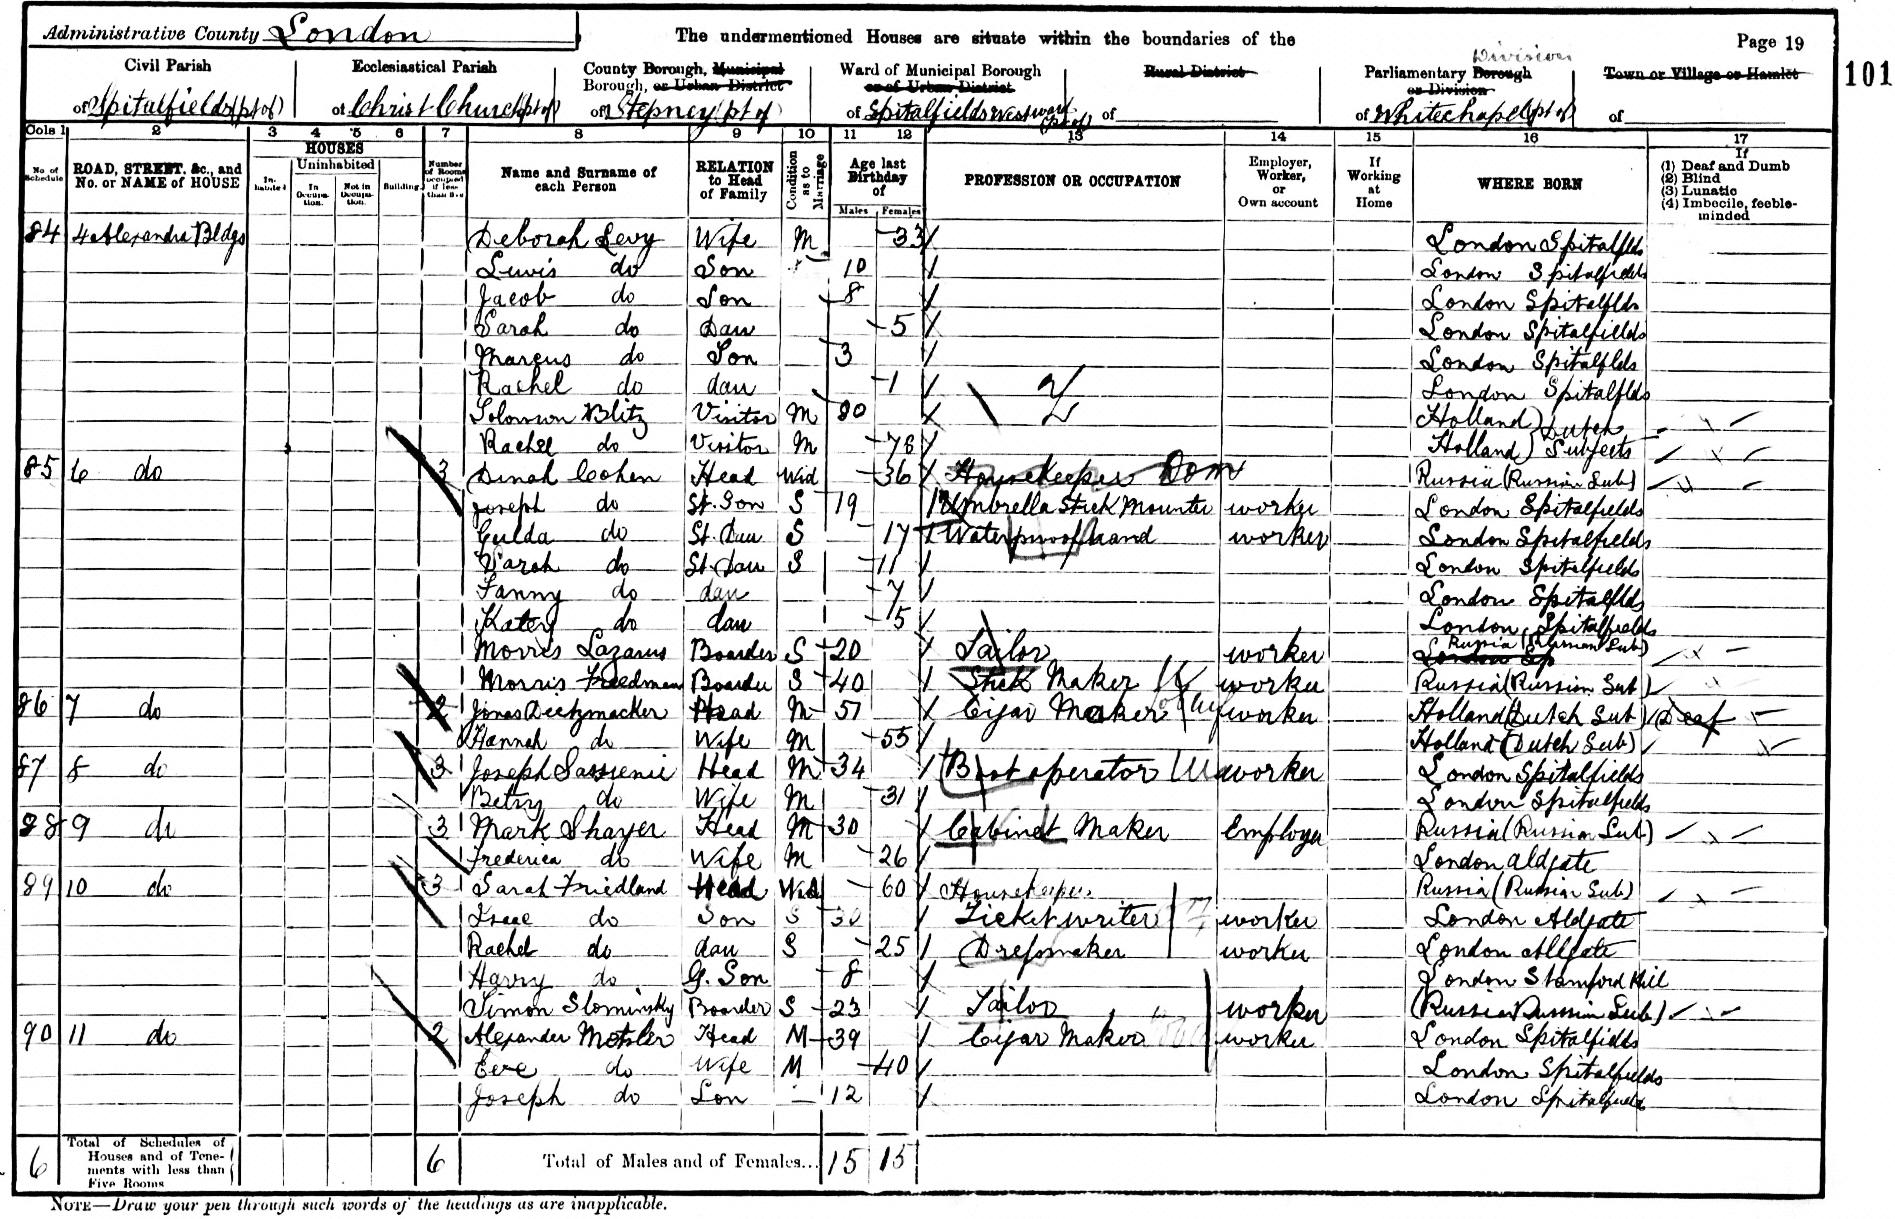 Administrative County London
The undermentioned Houses are situate within the boundaries of the
Page 19
101
Civil Parish of Spitalfields (pt of)
Ecclesiastical Parish of Christ Church (pt of)
County Borough, Municipal Borough, or Urban District of Stepney (pt of)
Ward of Municipal Borough or of Urban District of Spitalfields West ward (pt of)
Rural District of
Parliamentary Borough or Division Division of Whitechapel (pt of)
Town or Village or Hamlet of
Cols 1 2 3 4 5 6 7 8 9 10 11 12 13 14 15 16 17
No of Schedule
ROAD, STREET, &c., and No. or NAME of HOUSE
HOUSES
Inhabited
Uninhabited
In Occupation.
Not in Occupation.
Building
Number of Rooms occupied if less than five
Name and Surname of each Person
RELATION to Head of Family
Condition as to Marriage
Age last Birthday of
Males Females
PROFESSION OR OCCUPATION
Employer, Worker, or Own account
If Working at Home
WHERE BORN
If
(1) Deaf and Dumb
(2) Blind
(3) Lunatic
(4) Imbecile, feeble-minded
84 4 Alexandra Bldgs Deborah Levy Wife M 33 London Spitalflds
Lewis do Son 10 London Spitalfields
Jacob do Son 8 London Spitalflds
Sarah do Dau 5 London Spitalfields
Marcus do Son 3 London Spitalflds
Rachel do dau 1 London Spitalflds
Solomon Blitz Visitor M 80 Holland } Dutch
Rachel do Visitor M 78 Holland } Subjects
85 6 do 3 Dinah Cohen Head Wid 36 Housekeeper Dom Russia (Russian Sub)
Joseph do St. Son S 19 Umbrella Stick Mounter worker London Spitalfields
Gulda do St. Dau S 17 Waterproof hand worker London Spitalfields
Sarah do St. Dau S 11 London Spitalfields
Fanny do dau 7 London Spitalflds
Katey do dau 5 London Spitalfields
Morris Lazarus Boarder S 20 Tailor worker London Sp Russia (Russian Sub)
Morris Freedman Boarder S 40 Stick Maker worker Russia (Russian Sub)
86 7 do 2 Jonas Deetzmacker Head M 51 Cigar Maker worker Holland (Dutch Sub) Deaf
Hannah do Wife M 55 Holland (Dutch Sub)
87 8 do 3 Joseph Sassienie Head M 34 Boot operator worker London Spitalfields
Betsy do Wife M 31 London Spitalfields
88 9 do 3 Mark Shayer Head M 30 Cabinet Maker Employer Russia (Russian Sub)
Frederica do Wife M 26 London Aldgate
89 10 do 3 Sarah Friedland Head Wid 60 Housekeeper Russia (Russian Sub)
Isaac do Son S 30 Ticket writer worker London Aldgate
Rachel do dau S 25 Dressmaker worker London Aldgate
Harry do G. Son 8 London Stamford Hill
Simon Slominsky Boarder S 23 Tailor worker (Russia Russian Sub)
90 11 do 2 Alexander Metsler Head M 39 Cigar Maker worker London Spitalfields
Eve do Wife M 40 London Spitalfields
Joseph do Son 12 London Spitalfields
6 Total of Schedules of Houses and of Tenements with less than Five Rooms 6 Total of Males and of Females... 15 15
NOTE—Draw your pen through such words of the headings as are inapplicable.